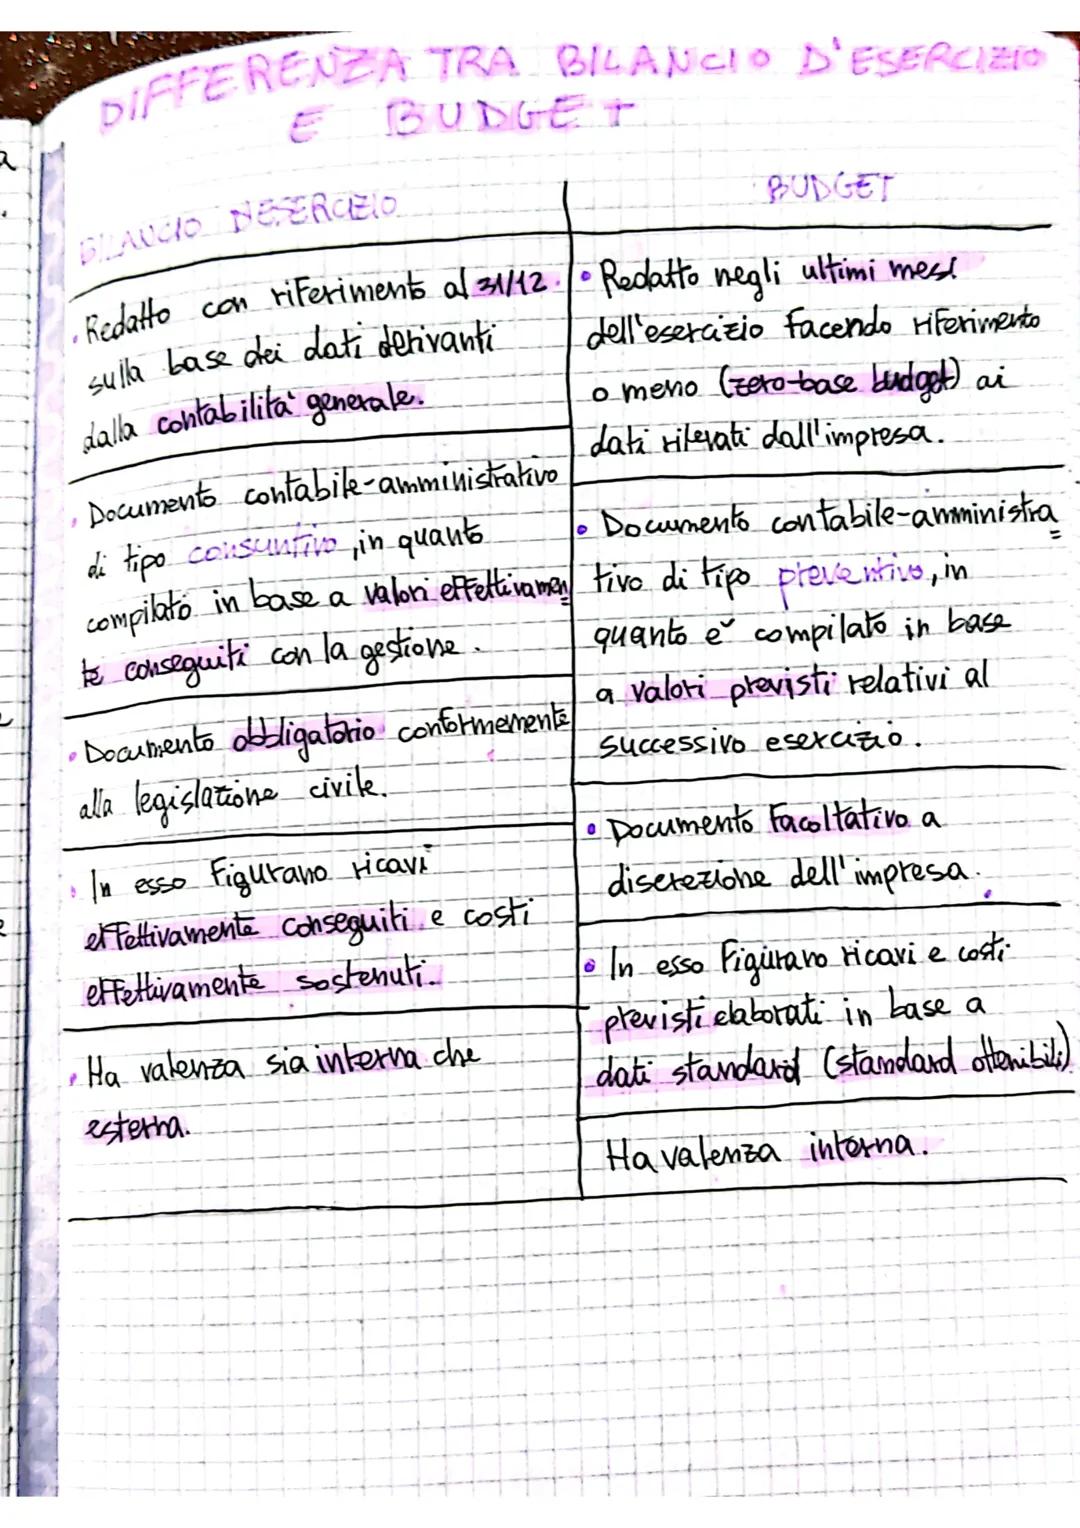 DIFFERENZA TRA BILANCIO D'ESERCIZIO
E BUDGET
BILANCIO D'ESERCIZIO
• Redatto con riferimento al 31/12
sulla base dei dati derivanti
dalla contabilità generale.
• Documento contabile-amministrativo
di tipo consuntivo, in quanto
compilato in base a valori effettivamen
te conseguiti con la gestione.
• Documento obbligatorio conformemente
alla legislazione civile.
• In esso figurano ricavi
effettivamente conseguiti e costi
effettivamente sostenuti.
• Ha valenza sia interna che
esterna.
BUDGET
• Redatto negli ultimi mesi
dell'esercizio facendo riferimento
o meno (zero-base budget) ai
dati rilevati dall'impresa.
• Documento contabile-amministra=
tivo di tipo preventivo, in
quanto è compilato in base
a valori previsti relativi al
successivo esercizio.
• Documento facoltativo a
discrezione dell'impresa.
• In esso figurano ricavi e costi
previsti elaborati in base a
dati standard (standard ottenibili)
Ha valenza interna.